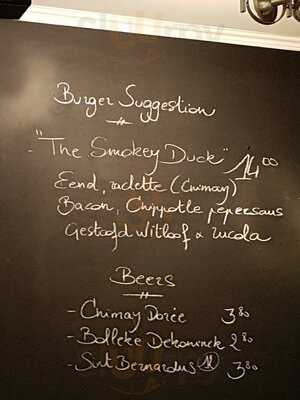 Burger Suggestion
- "The Smokey Duck" 14⁰⁰
Eend, raclette (Chimay)
Bacon, Chippotle pepersaus
Gestoofd witloof & rucola
Beers
- Chimay Dorée 3⁸⁰
- Bolleke Dekoninck 2⁸⁰
- Sint Bernardus 12 3⁸⁰